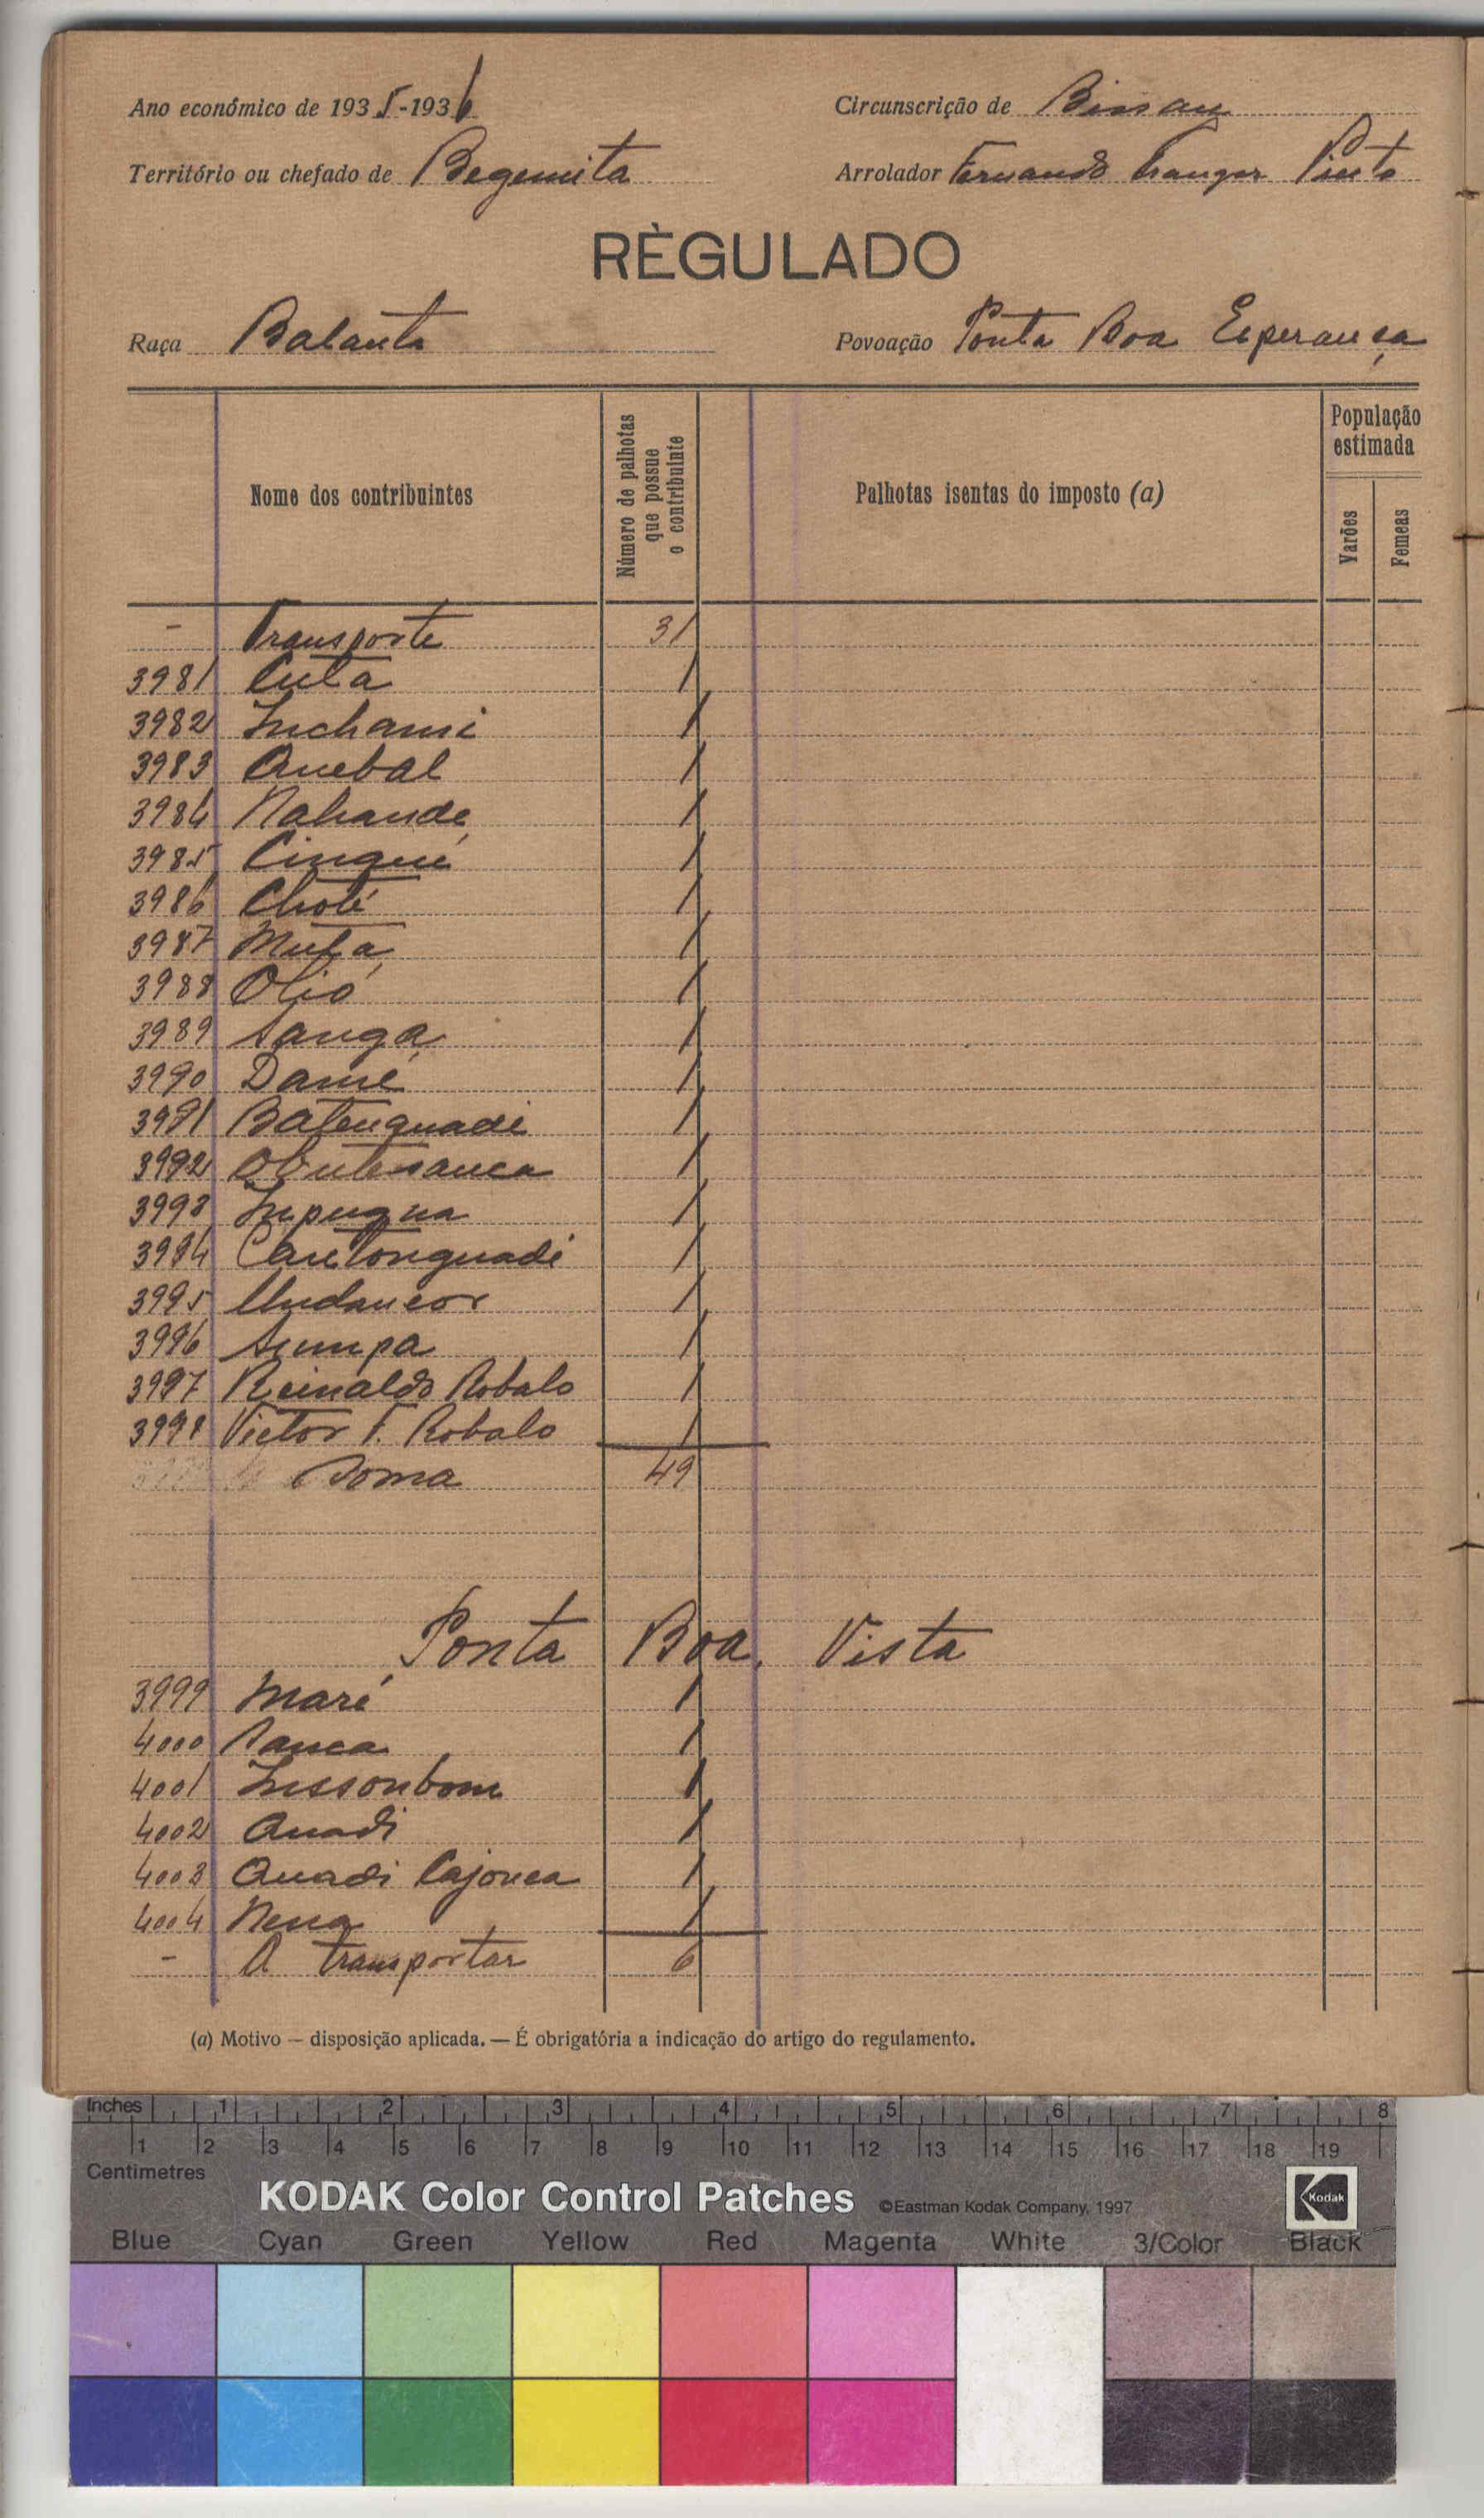 Ano económico de 1935-1936
Circunscrição de Bissau
Território ou chefado de Begemita
Arrolador Fernando Pinto
RÈGULADO
Raça Balanta
Povoação Ponta Boa Esperança
Nome dos contribuintes
Número de palhotas que possue o contribuinte
Palhotas isentas do imposto (a)
População estimada
Varões
Femeas
- Transporte 31
3981 Cuta 1
3982 Inchami 1
3983 Quebal 1
3984 Nahande 1
3985 Cinqué 1
3986 Choté 1
3987 Mufa 1
3988 Olió 1
3989 Sanga 1
3990 Damé 1
3991 Batenquadi 1
3992 1
3993 Inpugna 1
3994 1
3995 1
3996 Sumpa 1
3997 Reinaldo Robalo 1
3998 Victor F. Robalo 1
Soma 49
Ponta Boa Vista
3999 Maré 1
4000 Sanca 1
4001 Inssonbom 1
4002 Quadi 1
4003 Quadi Cajonca 1
4004 Nena 1
- A transportar 6
(a) Motivo — disposição aplicada. — É obrigatória a indicação do artigo do regulamento.
Inches 1 2 3 4 5 6 7 8
1 2 3 4 5 6 7 8 9 10 11 12 13 14 15 16 17 18 19
Centimetres
KODAK Color Control Patches ©Eastman Kodak Company, 1997 Kodak
Blue Cyan Green Yellow Red Magenta White 3/Color Black